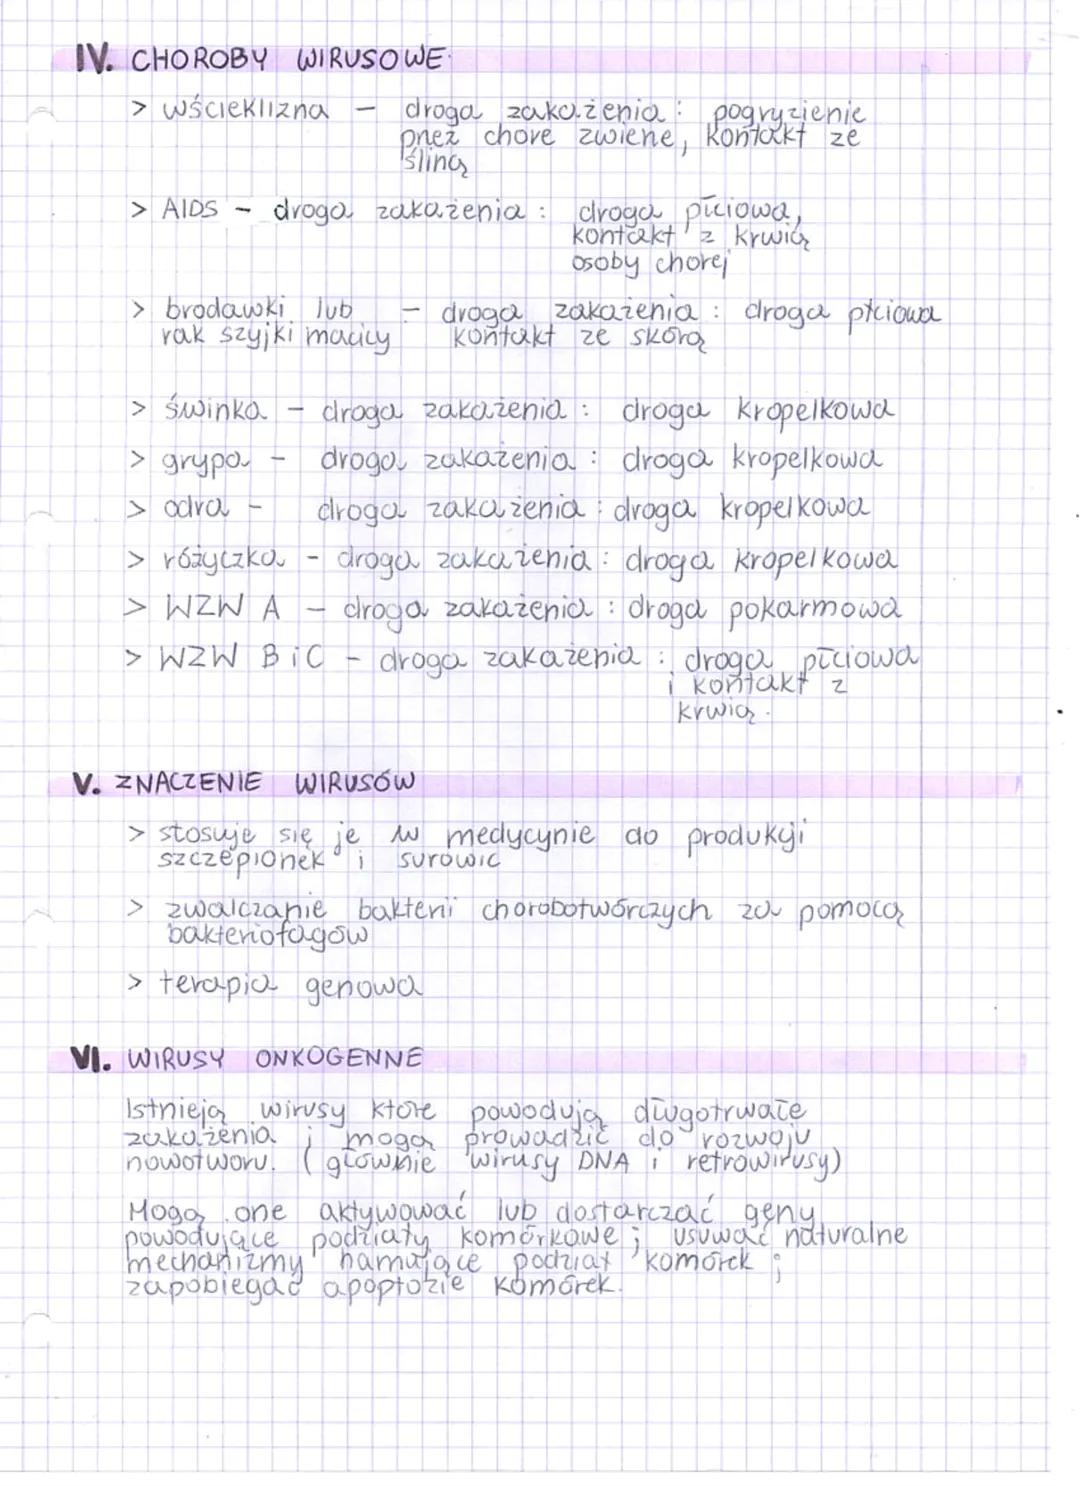 IV. CHOROBY WIRUSOWE
> wścieklizna – droga zakażenia: pogryzienie
przez chore zwierzę, kontakt ze
śliną
> AIDS – droga zakażenia: droga płciowa,
kontakt z krwią
osoby chorej
> brodawki lub – droga zakażenia: droga płciowa
rak szyjki macicy kontakt ze skórą
> świnka – droga zakażenia: droga kropelkowa
> grypa – droga zakażenia: droga kropelkowa
> odra – droga zakażenia: droga kropelkowa
> różyczka – droga zakażenia: droga kropelkowa
> WZW A – droga zakażenia: droga pokarmowa
> WZW B i C – droga zakażenia: droga płciowa
i kontakt z
krwią.
V. ZNACZENIE WIRUSÓW
> stosuje się je w medycynie do produkcji
szczepionek i surowic
> zwalczanie bakterii chorobotwórczych za pomocą
bakteriofagów
> terapia genowa
VI. WIRUSY ONKOGENNE
Istnieją wirusy które powodują długotrwałe
zakażenia i mogą prowadzić do rozwoju
nowotworu. (głównie wirusy DNA i retrowirusy)
Mogą one aktywować lub dostarczać geny
powodujące podziały komórkowe; usuwać naturalne
mechanizmy hamujące podział komórek;
zapobiegać apoptozie komórek.